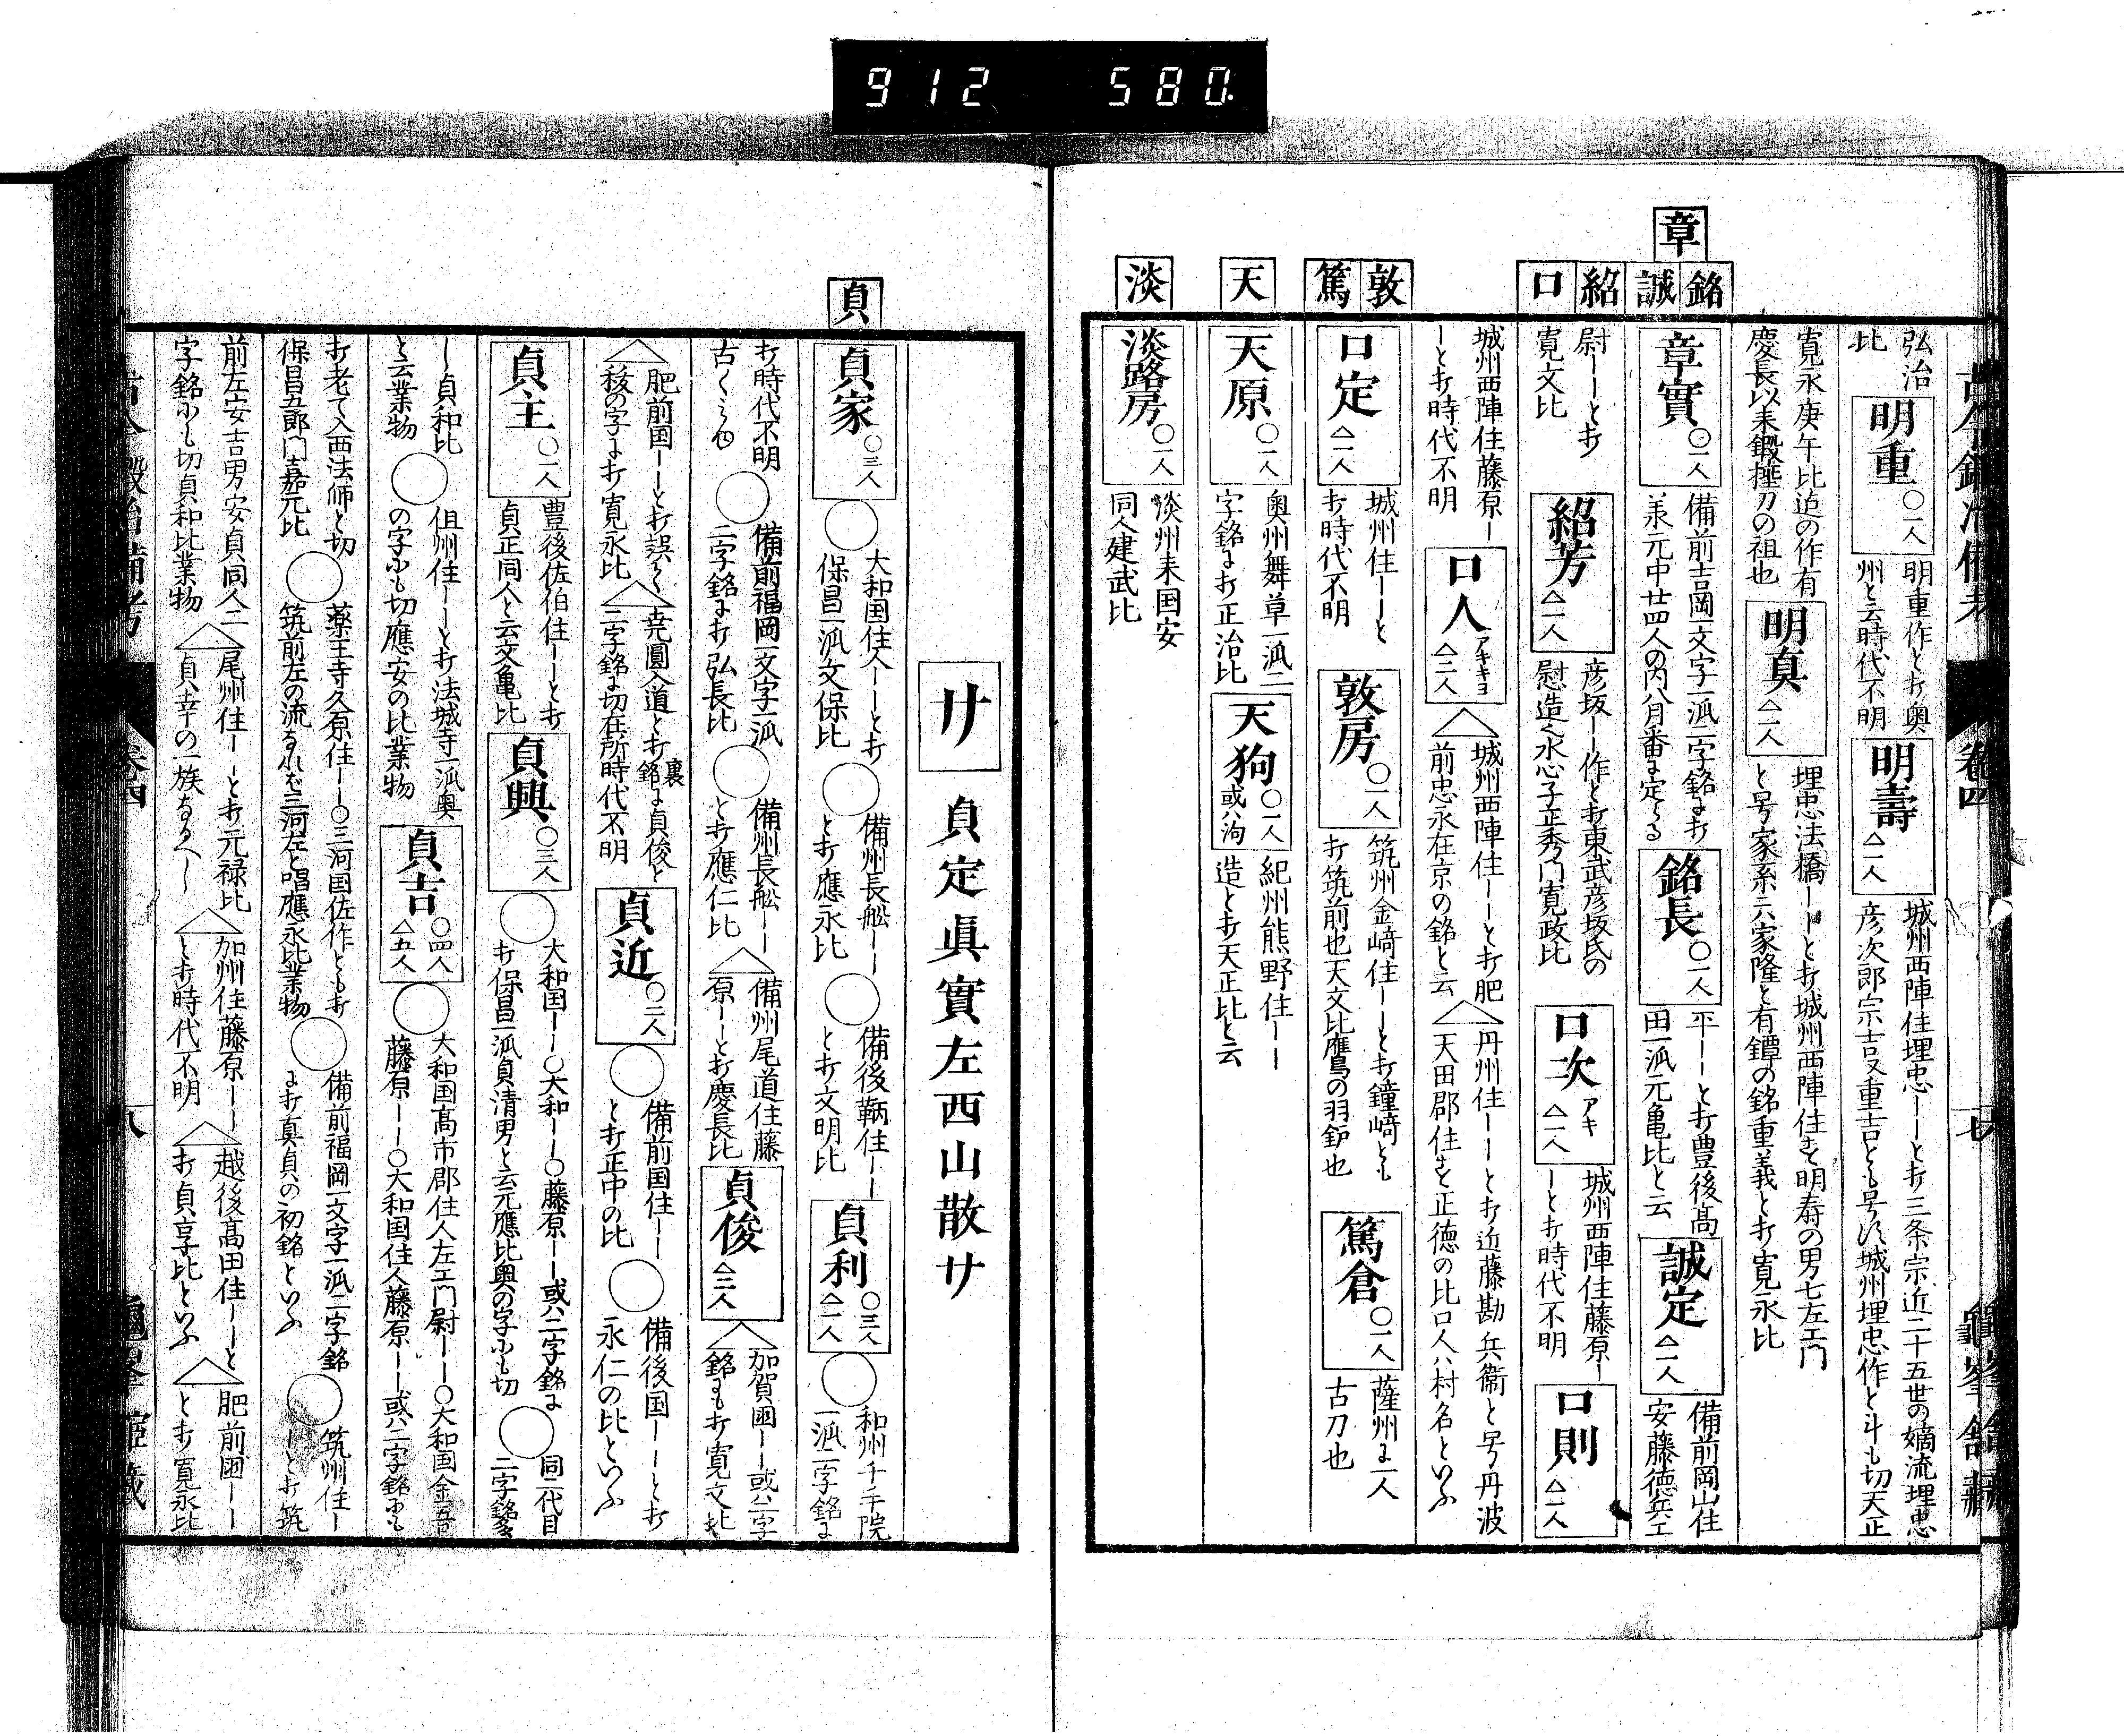 912 580
章
銘
誠
紹
口
敦
篤
天
淡
古今鍛冶備考 卷四 七 龜峯館藏
弘治比
明重 ○一人
明重作と打奥州と云時代不明
明壽 △一人
城州西陣住埋忠ーーと打三条宗近二十五世の嫡流埋忠彦次郎宗吉又重吉とも号バ城州埋忠作と斗も切天正
寛永庚午比迠の作有慶長以来鍛挫刀の祖也
明真 △一人
埋忠法橋ーーと打城州西陣住す明寿の男七左エ門と号家系六家隆と有鐔の銘重義と打寛永比
章實 ○一人
備前吉岡一文字一派一字銘に打美元中廿四人の内八月番に定らる
銘長 ○一人
平ーーと打豊後高田一派元亀比と云
誠定 △一人
備前岡山住安藤徳兵エ
尉ーーと打寛文比
紹芳 △一人
彦坂ー作と打東武彦坂氏の慰造之水心子正秀門寛政比
口次 アキ △一人
城州西陣住藤原ーーと打時代不明
口則 △一人
城州西陣住藤原ーーと打時代不明
口人 アキキヨ △二人
△城州西陣住ーーと打肥前忠永在京の銘と云
△丹州住ーーと打近藤勘兵衛と号丹波天田郡住す正徳の比口人ハ村名といふ
口定 △一人
城州住ーーと打時代不明
敦房 ○一人
筑州金﨑住ーーと打鐘﨑とも打筑前也天文比鷹の羽鈩也
篤倉 ○一人
薩州に一人古刀也
天原 ○一人
奥州舞草一派二字銘に打正治比
天狗 ○一人 或ハ泃
紀州熊野住ーー造と打天正比と云
淡路房 ○一人
淡州来国安同人建武比
貞
サ 貞定眞實左西山散サ
貞家 ○三人
○大和国住人ーーと打保昌一派文保比
○備州長舩ーーと打應永比
○備後鞆住ーーと打文明比
貞利 ○三人 △一人
○和州千手院一派二字銘に
打時代不明古くミゆ
○備前福岡一文字一派二字銘に打弘長比
○備州長舩ーーと打應仁比
△備州尾道住藤原ーーと打慶長比
貞俊 △三人
△加賀國ーー或ハ二字銘にも打寛文比
△肥前国ーーと打誤り
△尭圓入道と打裏銘に貞俊と二字銘に切在所時代不明
貞近 ○二人
○備前国住ーーと打正中の比
○備後国ーーと打永仁の比といふ
貞主 ○一人
豊後佐伯住ーーと打貞正同人と云文亀比
貞興 ○三人
○大和国ーー○大和ーー○藤原ーー或ハ二字銘に打保昌一派貞清男と云元應比奥の字にも切
○同二代目二字銘多
ー貞和比と云業物
○但州住ーーと打法城寺一派奥の字にも切應安の比業物
貞吉 ○四人 △五人
○大和国高市郡住人左エ門尉ーー○大和国金吾藤原ーー○大和国住人藤原ーー或ハ二字銘にも
打老て入西法師と切保昌五郎門嘉元比
○薬王寺久原住ーー○三河国佐作とも打筑前左の流なれバ三河左と唱應永比業物
○備前福岡一文字一派二字銘に打真貞の初銘といふ
○筑州住ーーと打筑
前左安吉男安貞同人二字銘にも切貞和比業物
△尾州住ーーと打元禄比貞幸の一族なるべし
△加州住藤原ーーと打時代不明
△越後高田住ーーと打貞享比といふ
△肥前國ーーと打寛永比
古今鍛冶備考 卷四 八 龜峯館藏